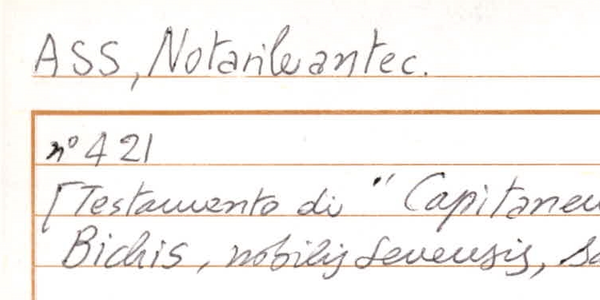 ASS, Notarile antec.
nº 421
[Testamento di "Capitaneu
Bichis, nobilis senensis, sa